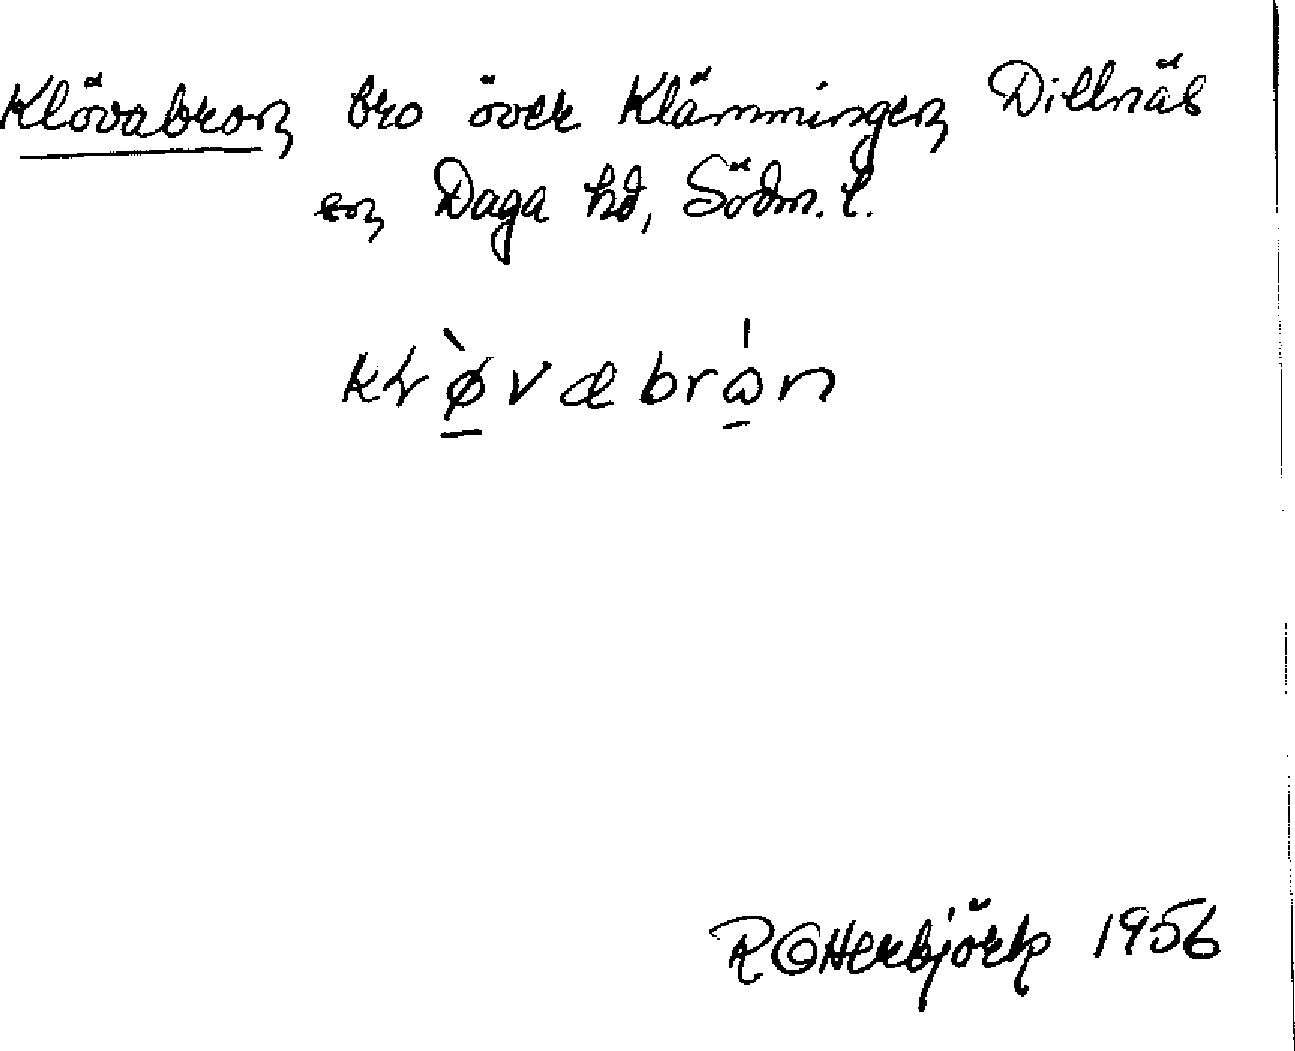 Klövabron, bro över Klämmingen, Dillnäs
sn, Daga hd, Södm. l.
kɬø̀væbrωn
R G Herbjörk 1956